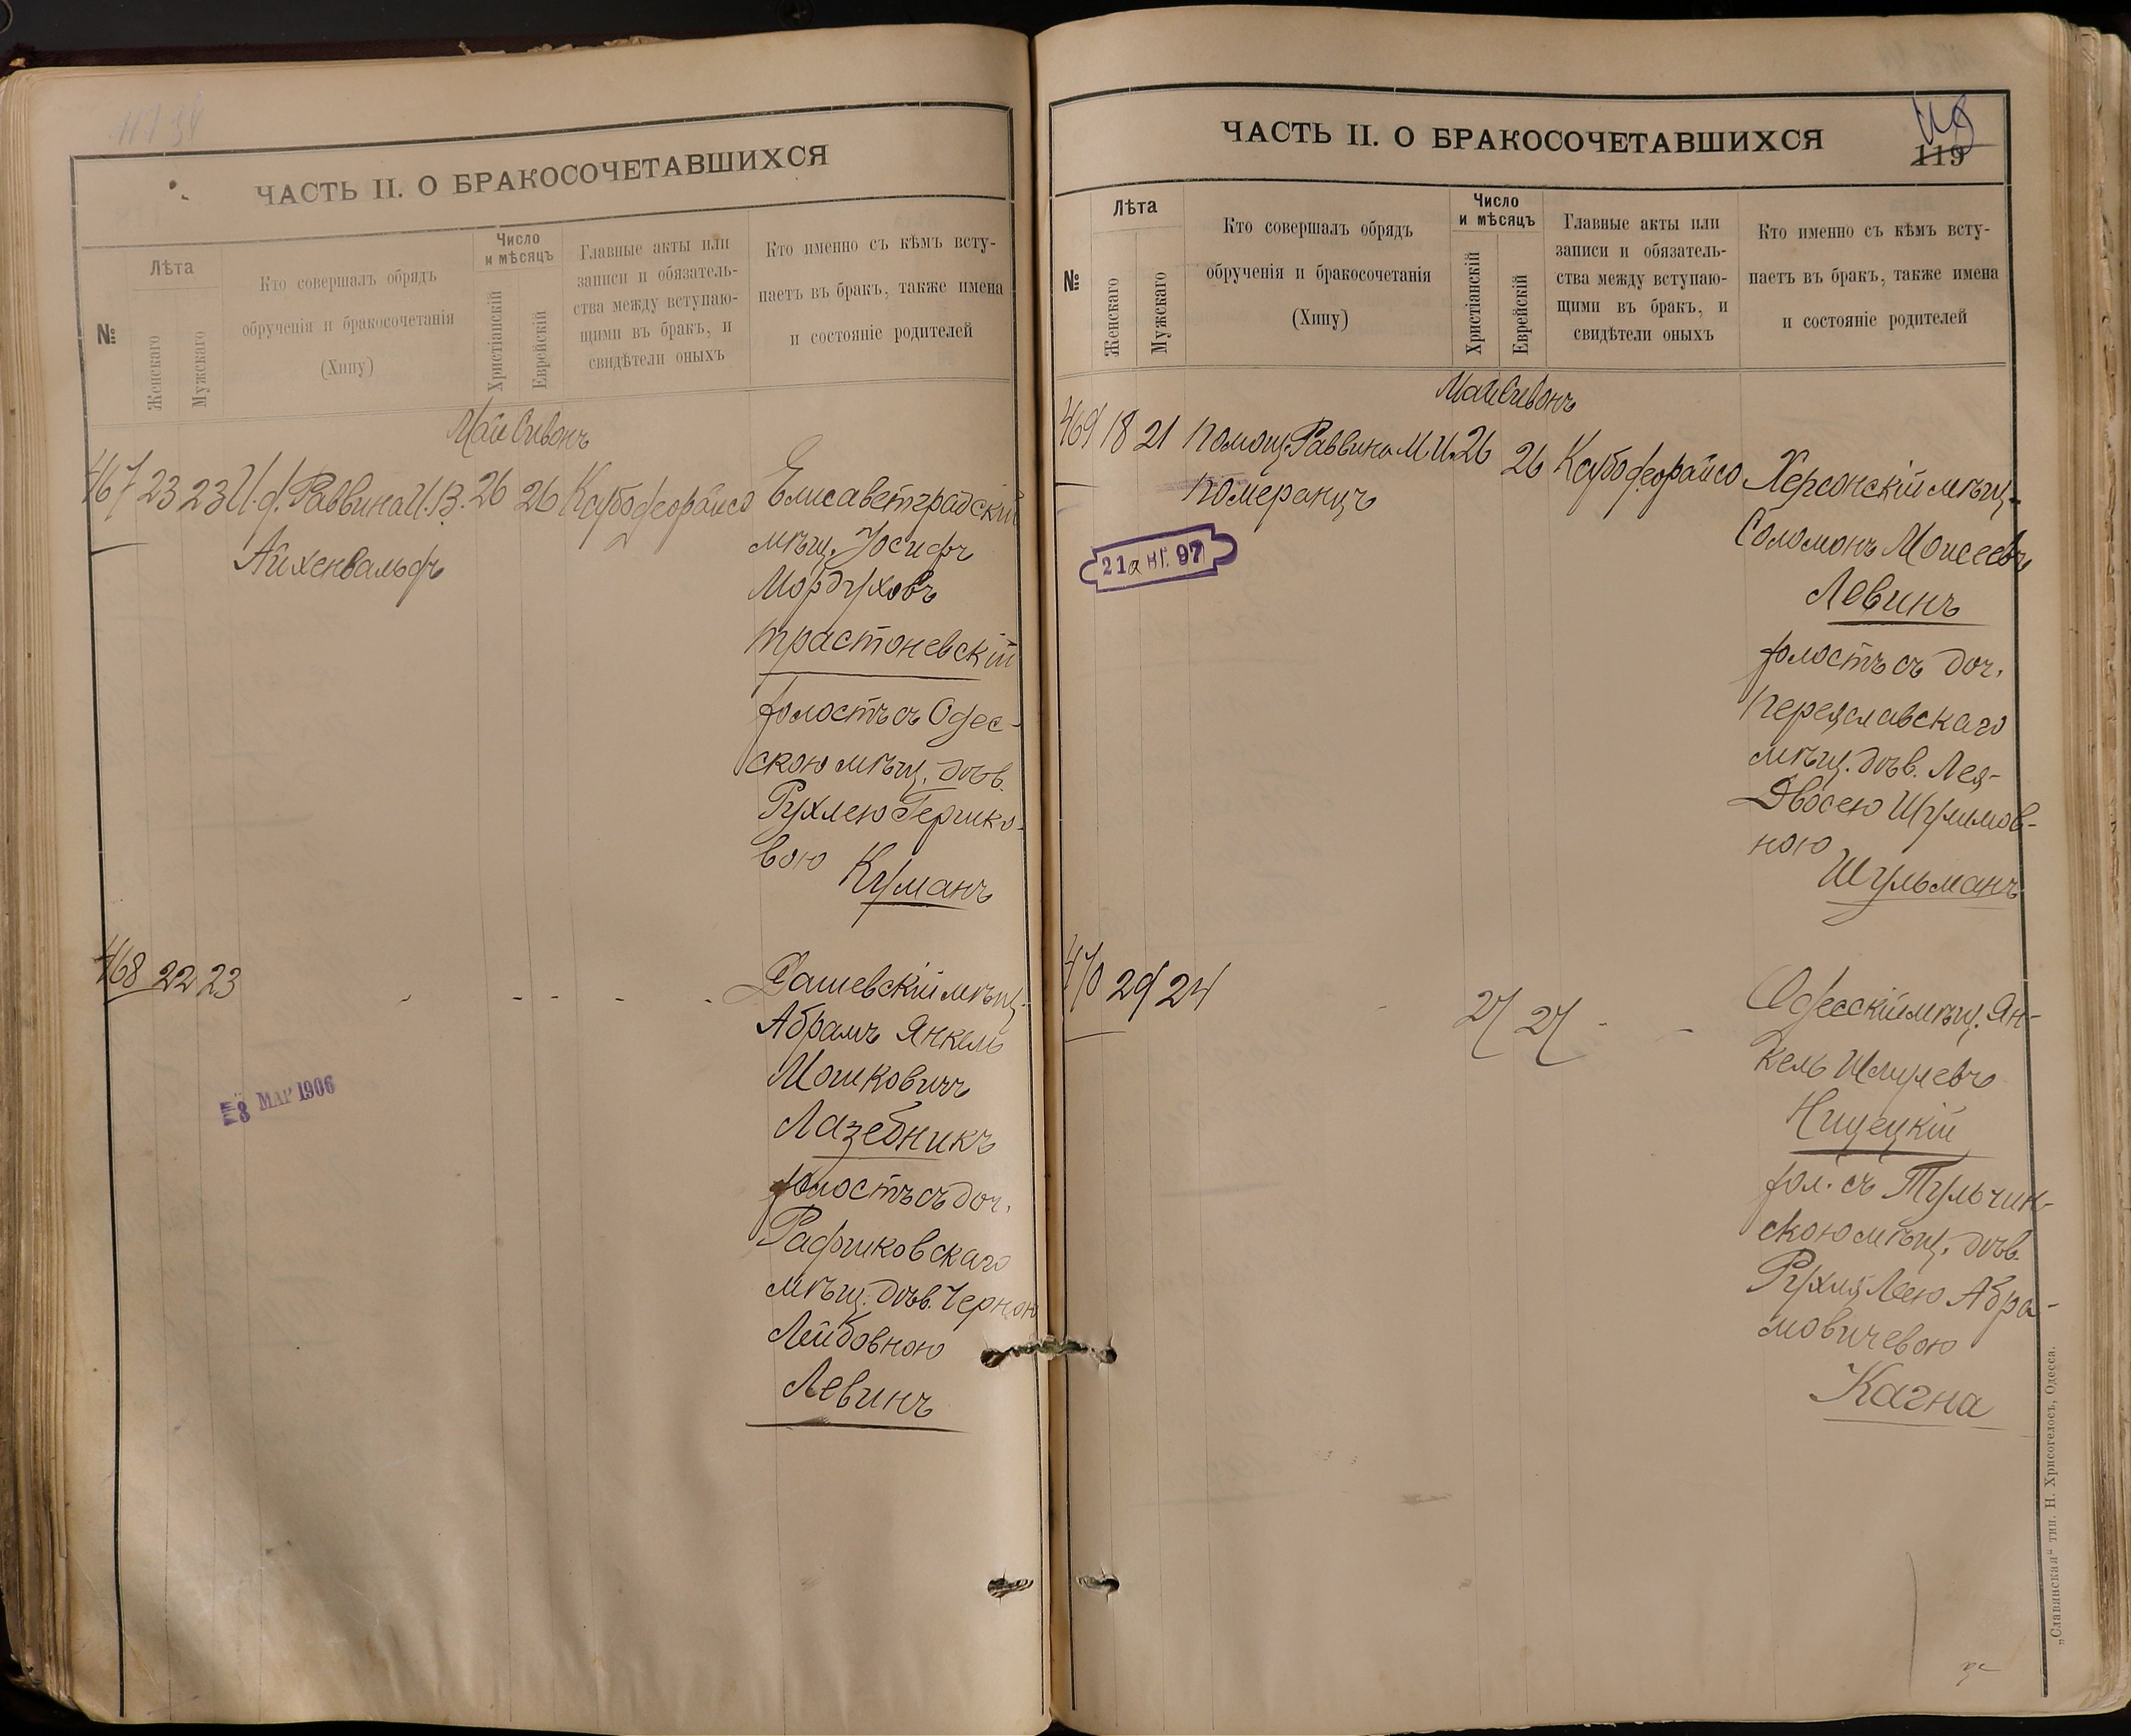 ЧАСТЬ II. О БРАКОСОЧЕТАВШИХСЯ
№
Лѣта
Женскаго
Мужскаго
Кто совершалъ обрядъ
обрученія и бракосочетанія
(Хипу)
Число
и мѣсяцъ
Христіанскій
Еврейскій
Главные акты или
записи и обязатель-
ства между вступаю-
щими въ бракъ, и
свидѣтели оныхъ
Кто именно съ кѣмъ всту-
паетъ въ бракъ, также имена
и состояніе родителей
Май Сивонъ
467 23 23 И. д. Раввина И. В. 26 26 Елисаветградскій
Айхенвальдъ
мѣщ. Іосифъ
Мордуховъ
Трастоневскій
холостъ съ Одес-
скою мѣщ. дѣв.
Рухлею Гершко-
вою
Куманъ
468 22 23 - - - - - Дашевскій мѣщ.
Абрамъ Янкель
Мошковичъ
Лазебникъ
холостъ съ доч.
Рафиковскаго
мѣщ. дѣв. Черною
Лейбовною
Левинъ
8 МАР 1906
ЧАСТЬ II. О БРАКОСОЧЕТАВШИХСЯ
119
№
Лѣта
Женскаго
Мужскаго
Кто совершалъ обрядъ
обрученія и бракосочетанія
(Хипу)
Число
и мѣсяцъ
Христіанскій
Еврейскій
Главные акты или
записи и обязатель-
ства между вступаю-
щими въ бракъ, и
свидѣтели оныхъ
Кто именно съ кѣмъ всту-
паетъ въ бракъ, также имена
и состояніе родителей
Май Сивонъ
469 18 21 Помощ. Раввина М. И. 26 26 Херсонскій мѣщ.
Померанцъ
21 авг. 97
Соломонъ Моисеевъ
Левинъ
холостъ съ доч.
Переяславскаго
мѣщ. дѣв. Лея-
Двосею Шулимов-
ною
Шульманъ
470 29 24 - 27 27 - - Одесскій мѣщ. Ян-
кель Шмулевъ
Нищецкій
хол. съ Тульчин-
скою мѣщ. дѣв.
Рухля Леею Абра-
мовичевою
Кагна
„Славянская“ тип. Н. Хрисогелосъ, Одесса.